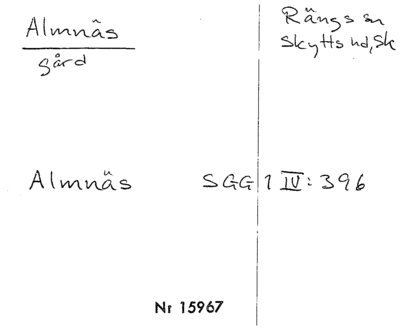 Almnäs
gård
Rängs sn
Skytts hd, Sk
Almnäs SGG 1 IV: 396
Nr 15967